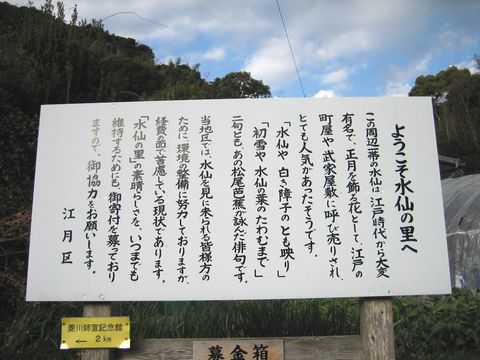 ようこそ水仙の里へ
この周辺一帯の水仙は、江戸時代から大変
有名で、正月を飾る花として、江戸の
町屋や武家屋敷に呼び売りされ、
とても人気があったそうです。
「水仙や 白き障子の とも映り」
「初雪や 水仙の葉の たわむまで」
二句とも、あの松尾芭蕉が詠んだ俳句です。
当地区では、水仙を見に来られる皆様方の
ために、環境の整備に努力しておりますが、
経費の面で苦慮している現状であります。
「水仙の里」の素晴らしさを、いつまでも
維持するためにも、御寄付を募っており
ますので、御協力をお願いします。
江月区
菱川師宣記念館
← 2km
募金箱